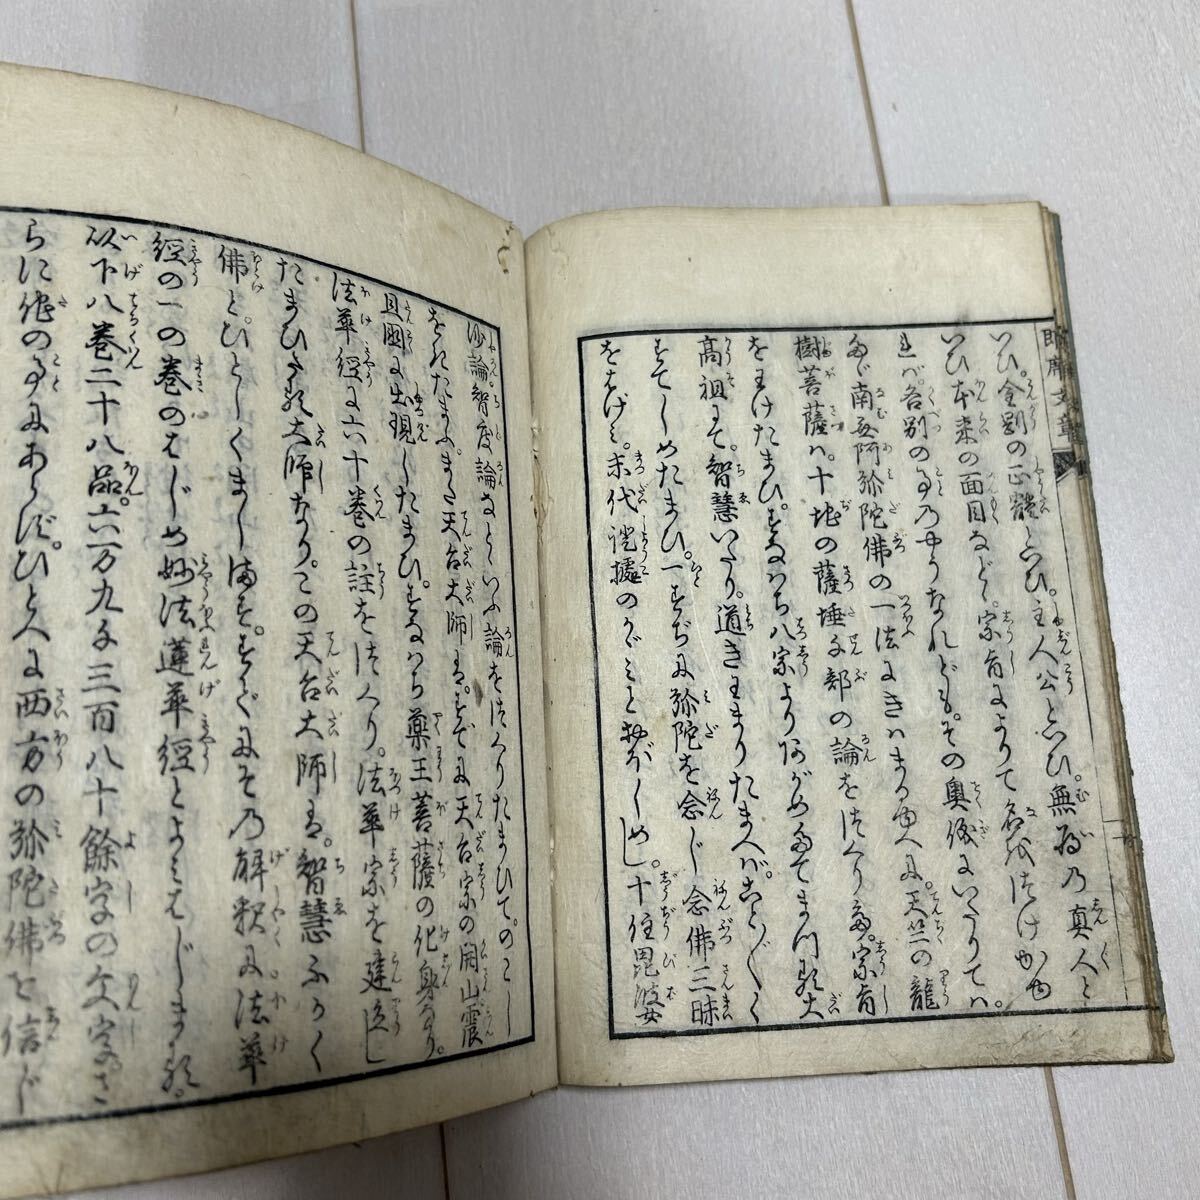 いひ。金剛の正體といひ。主人公といひ。無為の真人と
いひ本来の面目など。宗旨によりて名はつけかゆ
れバ。各別の事のやうなれども。その奥儀にいたりてハ。
たゞ南無阿弥陀佛の一法にきハまるゆへに。天竺の龍
樹菩薩ハ。十地の薩埵千部の論をつくりて。宗旨
をわけたまひ。すなハち八宗よりあがめたてまつる大
高祖にて。智慧いたり。道きわまりたまへバ。ことごとく
すてしめたまひ。一すぢに弥陀を念じ念佛三昧
をはげミ。末代證據のかゞミとおぼしめし。十住毘婆
沙論智度論などいふ論をつくりたまひて。のこし
をきたまふ。また天台大師は。すでに天台宗の開山震
旦國に出現したまひ。すなハち薬王菩薩の化身なり。
法華経に六十巻の註をつくり。法華宗を建立し
たまひたる大師なり。この天台大師は。智慧ふかく
佛とひとしくまします。すでにその解釈に法華
経の一の巻のはじめ妙法蓮華経とよみはじまる。
以下八巻二十八品。六万九千三百八十餘字の文字。さ
らに他の事にあらず。ひとへに西方の弥陀佛を信じ
即席文章